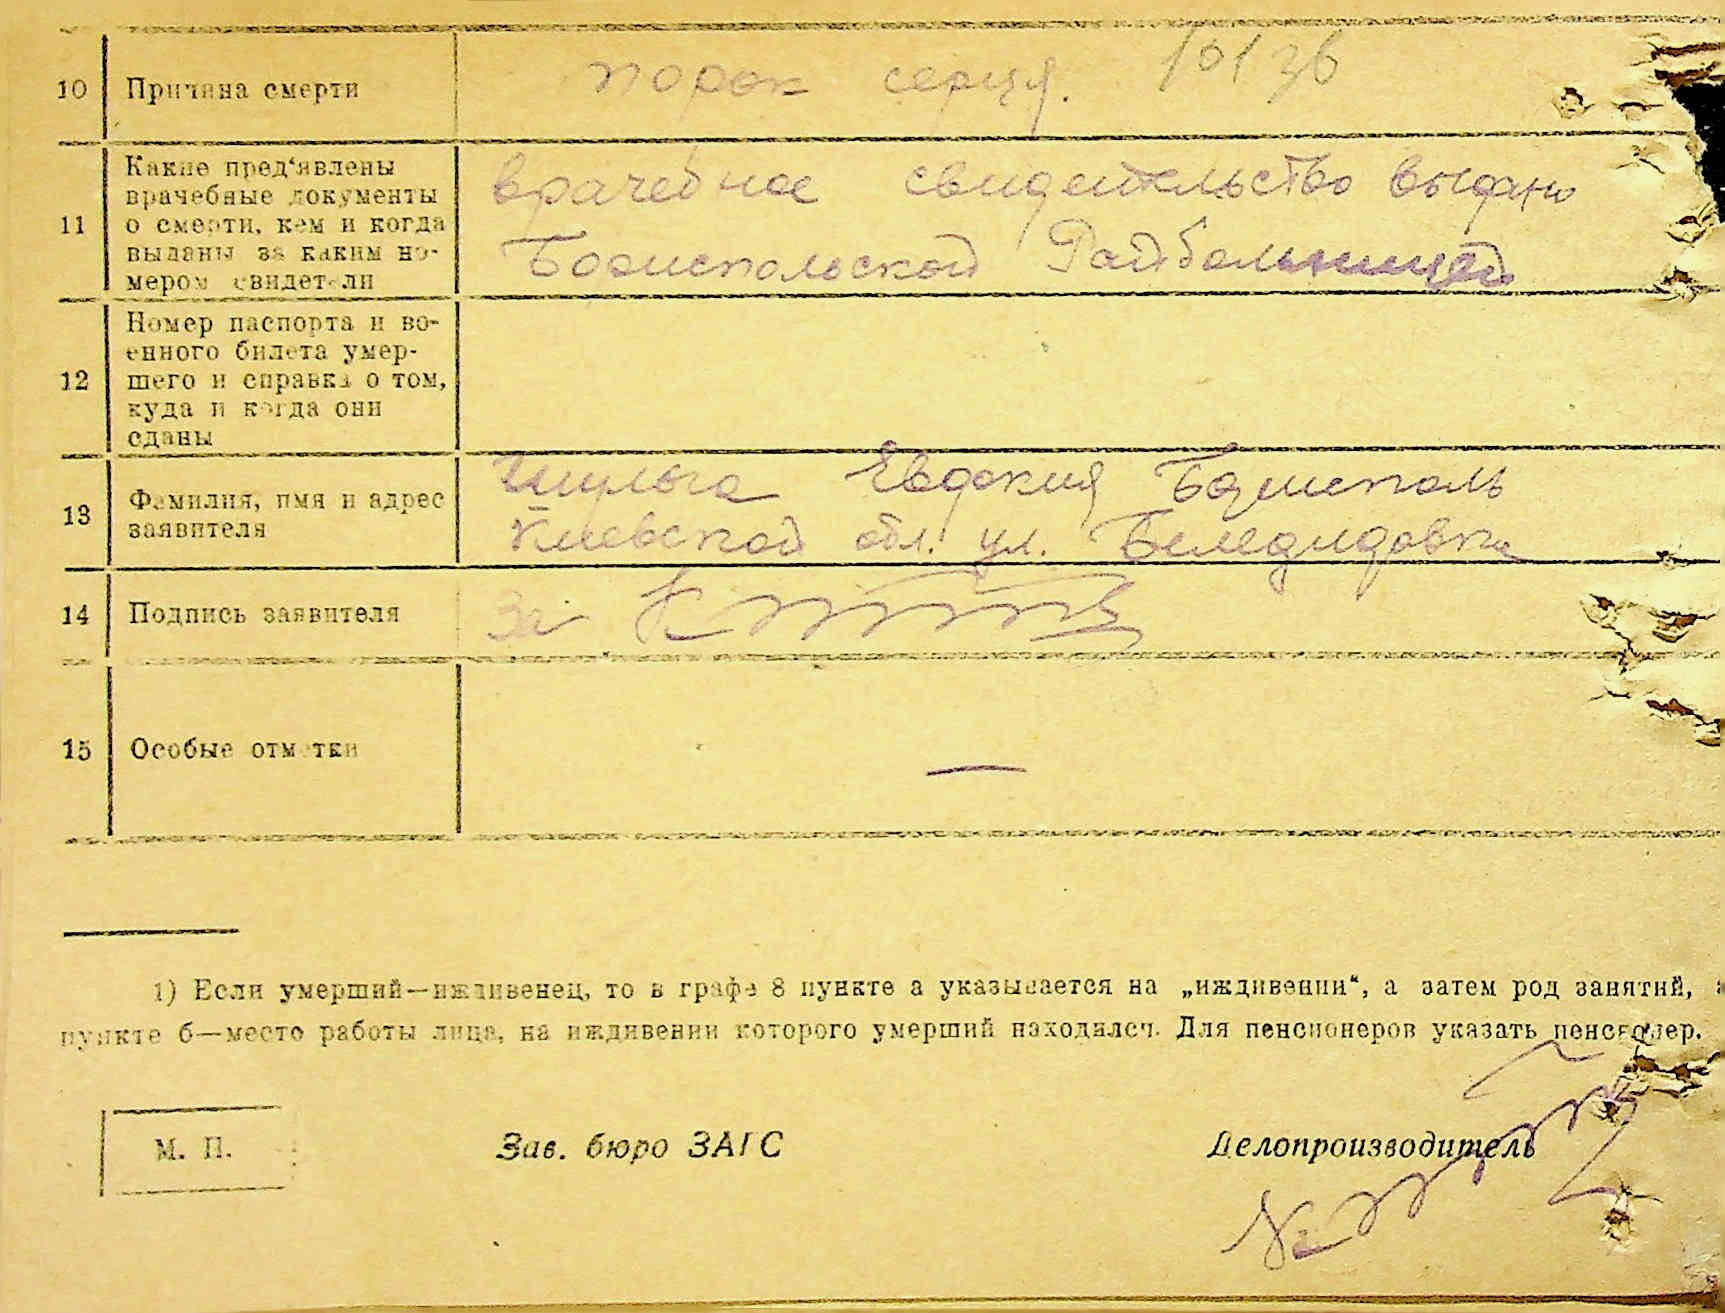 10 Причина смерти порок серця. 10136
Какие пред‘явлены
врачебные документы врачебное свидетельство выдано
11 о смерти, кем и когда
выданы за каким но- Бориспольской Райбольницей
мером свидетели
Номер паспорта и во-
енного билета умер-
12 шего и справка о том,
куда и когда они
сданы
Шульга Евдокия Борисполь
13 Фамилия, имя и адрес
заявителя Киевской обл. ул.
14 Подпись заявителя За
15 Особые отметки —
1) Если умерший—иждивенец, то в графе 8 пункте а указывается на „иждивении“, а затем род занятий,
пункте б—место работы лица, на иждивении которого умерший находился. Для пенсионеров указать пенсионер.
М. П. Зав. бюро ЗАГС Делопроизводитель